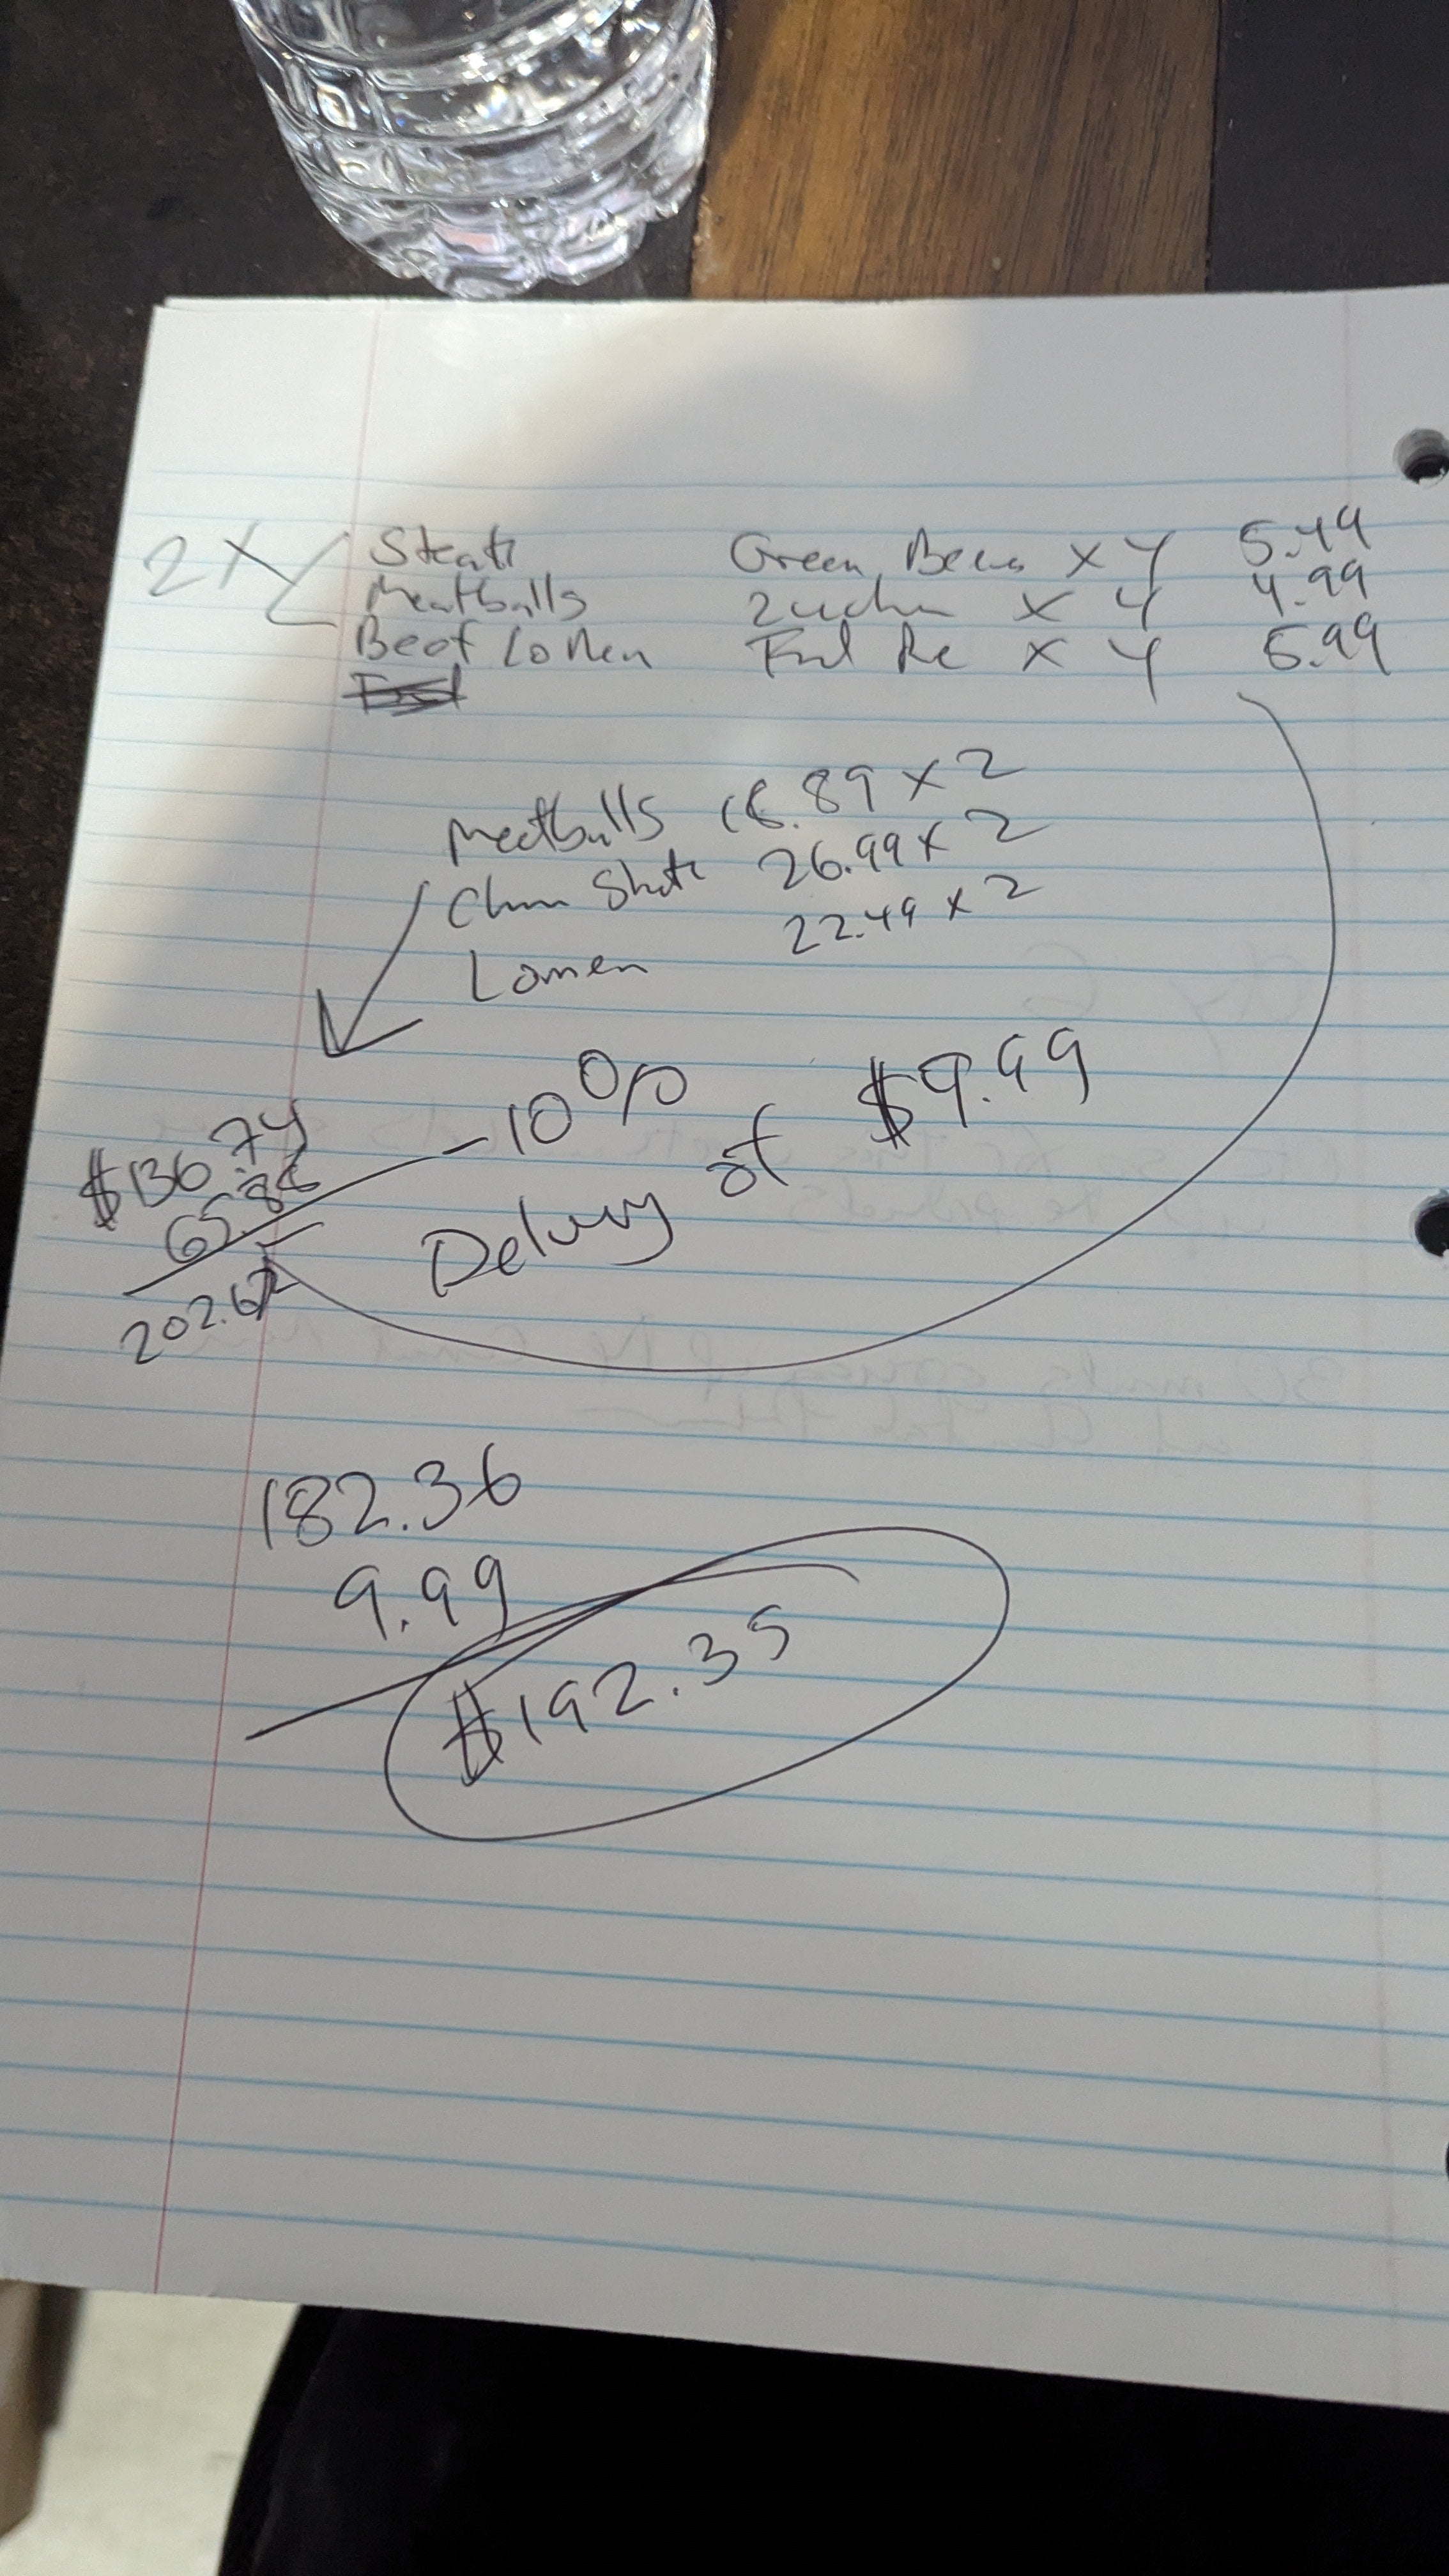 2X
Steak Green Beans x 4 5.49
Meatballs Zuchn x 4 4.99
Beef Lo Men x 4 5.99
Meatballs 18.89 x 2
26.99 x 2
Lomen 22.49 x 2
- 10%
$136.74
65.88
202.62
Delivery of $9.99
182.36
9.99
$192.35